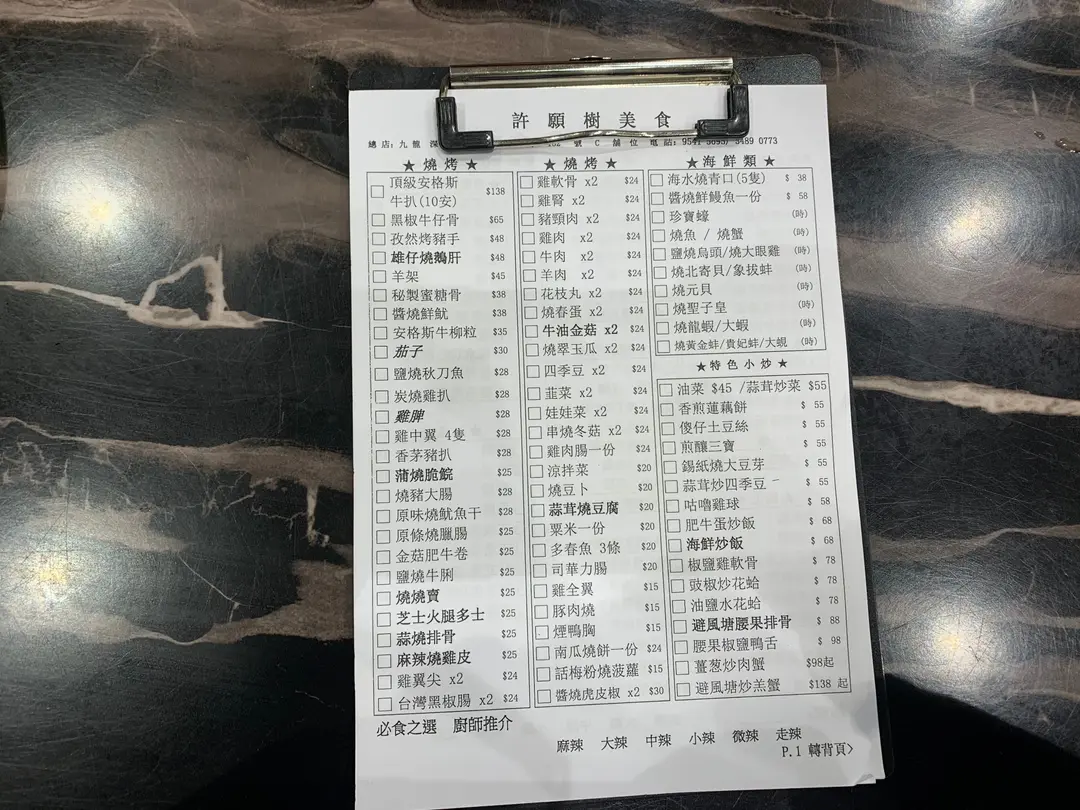 許願樹美食
總店: 九龍 深 號 C 舖位 電話: 0773
★燒烤★
頂級安格斯
牛扒(10安) $138
黑椒牛仔骨 $65
孜然烤豬手 $48
雄仔燒鵝肝 $48
羊架 $45
秘製蜜糖骨 $38
醬燒鮮魷 $38
安格斯牛柳粒 $35
茄子 $30
鹽燒秋刀魚 $28
炭燒雞扒 $28
雞脾 $28
雞中翼 4隻 $28
香茅豬扒 $28
蒲燒脆鯇 $25
燒豬大腸 $28
原味燒魷魚干 $28
原條燒臘腸 $25
金菇肥牛卷 $25
鹽燒牛脷 $25
燒燒賣 $25
芝士火腿多士 $25
蒜燒排骨 $25
麻辣燒雞皮 $25
雞翼尖 x2 $24
台灣黑椒腸 x2 $24
★燒烤★
雞軟骨 x2 $24
雞腎 x2 $24
豬頸肉 x2 $24
雞肉 x2 $24
牛肉 x2 $24
羊肉 x2 $24
花枝丸 x2 $24
燒春蛋 x2 $24
牛油金菇 x2 $24
燒翠玉瓜 x2 $24
四季豆 x2 $24
韮菜 x2 $24
娃娃菜 x2 $24
串燒冬菇 x2 $24
雞肉腸一份 $24
涼拌菜 $20
燒豆卜 $20
蒜茸燒豆腐 $20
粟米一份 $20
多春魚 3條 $20
司華力腸 $20
雞全翼 $15
豚肉燒 $15
煙鴨胸 $15
南瓜燒餅一份 $24
話梅粉燒菠蘿 $15
醬燒虎皮椒 x2 $30
★海鮮類★
海水燒青口(5隻) $ 38
醬燒鮮鰻魚一份 $ 58
珍寶蠔 (時)
燒魚 / 燒蟹 (時)
鹽燒烏頭/燒大眼雞 (時)
燒北寄貝/象拔蚌 (時)
燒元貝 (時)
燒聖子皇 (時)
燒龍蝦/大蝦 (時)
燒黃金蚌/貴妃蚌/大蜆 (時)
★特色小炒★
油菜 $45 /蒜茸炒菜 $55
香煎蓮藕餅 $ 55
傻仔土豆絲 $ 55
煎釀三寶 $ 55
錫紙燒大豆芽 $ 55
蒜茸炒四季豆 $ 55
咕嚕雞球 $ 58
肥牛蛋炒飯 $ 68
海鮮炒飯 $ 68
椒鹽雞軟骨 $ 78
豉椒炒花蛤 $ 78
油鹽水花蛤 $ 78
避風塘腰果排骨 $ 88
腰果椒鹽鴨舌 $ 98
薑葱炒肉蟹 $98起
避風塘炒羔蟹 $138 起
必食之選 廚師推介
麻辣 大辣 中辣 小辣 微辣 走辣
P.1 轉背頁>